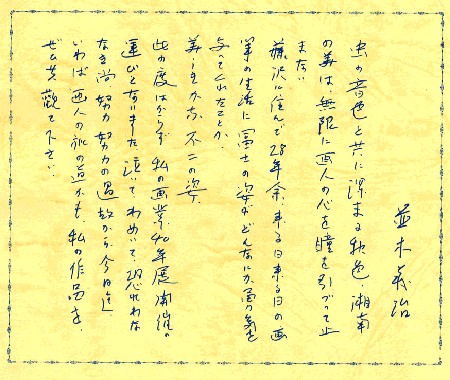 並木義治
虫の音色と共に深まる秋色、湘南
の美は、無限に画人の心を瞳を引づって止
まない
藤沢に住んで28年余、来る日来る日の画
筆の生活に冨士の姿が、どんなにか勇気を
与ってくれたことか、
美しきかな 不二の姿、
此の度はからず 私の画業40年展開催の
運びとなりました 泣いて、わめいて、恐れ
なき尚努力努力の過去から今日迄
いわば 画人の道かも、私の作品を、
ぜひ共観て下さい、